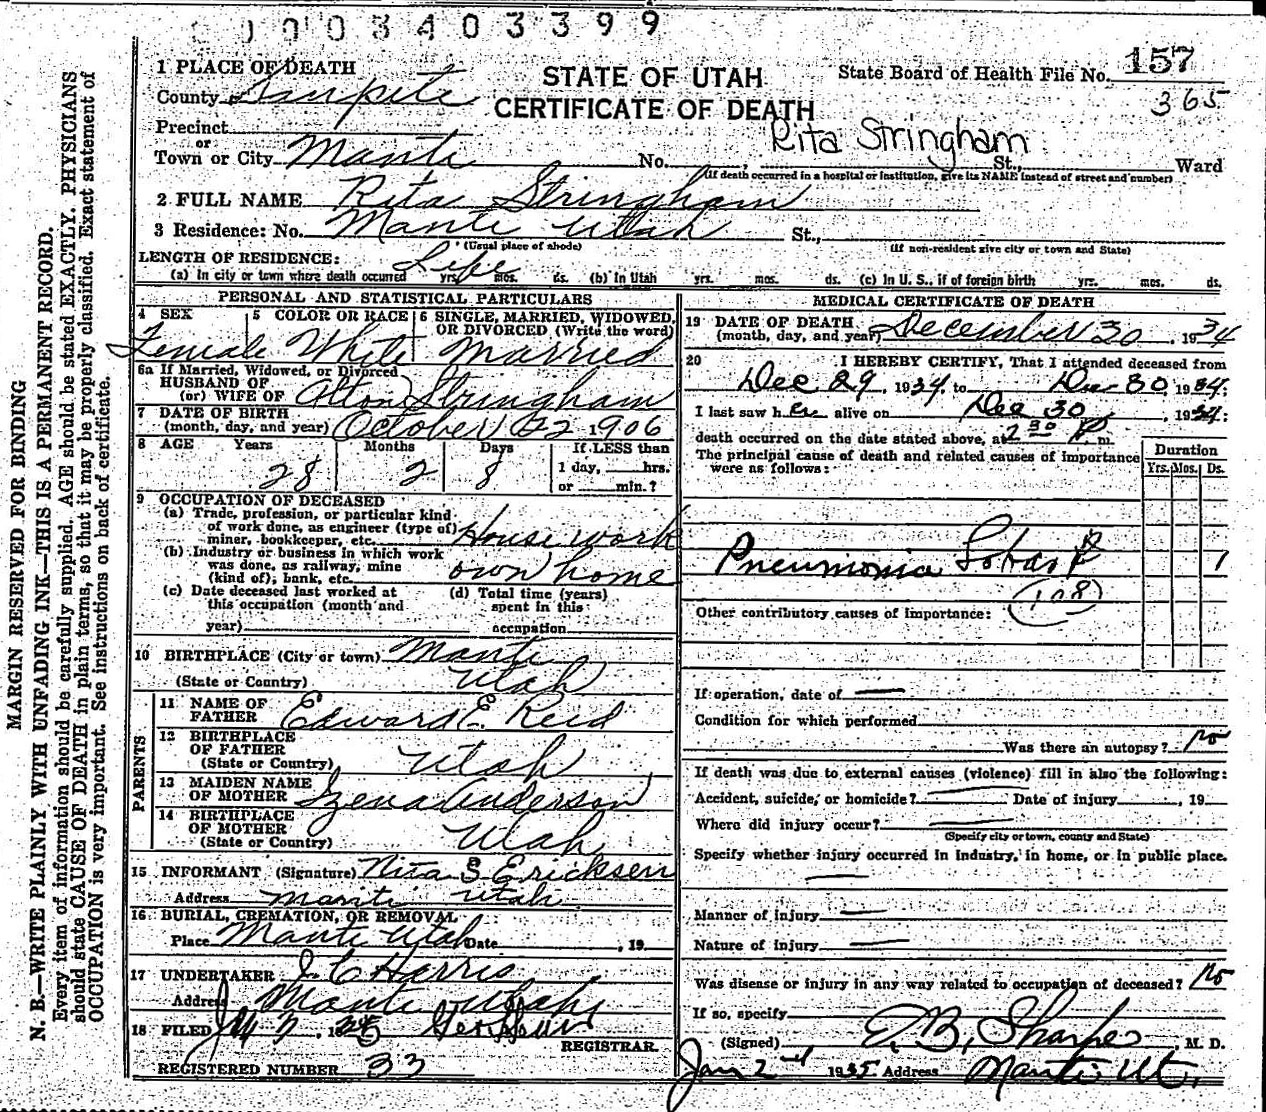 0003403399
1 PLACE OF DEATH
County Sanpete
STATE OF UTAH
CERTIFICATE OF DEATH
State Board of Health File No. 157
365
Precinct
or
Town or City Manti No. , Rita Stringham St., Ward
(If death occurred in a hospital or institution, give its NAME instead of street and number)
2 FULL NAME Rita Stringham
3 Residence: No. Manti Utah St.,
(Usual place of abode) (If non-resident give city or town and State)
LENGTH OF RESIDENCE:
(a) In city or town where death occurred Life yrs. mos. ds. (b) In Utah yrs. mos. ds. (c) In U. S., if of foreign birth yrs. mos. ds.
PERSONAL AND STATISTICAL PARTICULARS
4 SEX 5 COLOR OR RACE 6 SINGLE, MARRIED, WIDOWED, OR DIVORCED (Write the word)
Female White Married
6a If Married, Widowed, or Divorced
HUSBAND OF
(or) WIFE OF Alton Stringham
7 DATE OF BIRTH
(month, day, and year) October 22 1906
8 AGE Years Months Days If LESS than
28 2 8 1 day, hrs.
or min.?
9 OCCUPATION OF DECEASED
(a) Trade, profession, or particular kind
of work done, as engineer (type of)
miner, bookkeeper, etc. House work
(b) Industry or business in which work
was done, as railway, mine
(kind of); bank, etc. own home
(c) Date deceased last worked at
this occupation (month and
year)
(d) Total time (years)
spent in this
occupation
10 BIRTHPLACE (City or town) Manti
(State or Country) Utah
PARENTS
11 NAME OF
FATHER Edward E. Reid
12 BIRTHPLACE
OF FATHER
(State or Country) Utah
13 MAIDEN NAME
OF MOTHER Anderson
14 BIRTHPLACE
OF MOTHER
(State or Country) Utah
15 INFORMANT (Signature) Nita S Ericksen
Address Manti Utah
16 BURIAL, CREMATION, OR REMOVAL
Place Manti Utah Date , 19
17 UNDERTAKER Harris
Address Manti Utah
18 FILED 3, 1935
REGISTRAR
REGISTERED NUMBER 33
MEDICAL CERTIFICATE OF DEATH
19 DATE OF DEATH
(month, day, and year) December 30, 1934
20 I HEREBY CERTIFY, That I attended deceased from
Dec 29, 1934, to Dec 30, 1934;
I last saw her alive on Dec 30, 1934;
death occurred on the date stated above, at 2 30 P m.
The principal cause of death and related causes of importance
were as follows:
Duration
Yrs. Mos. Ds.
Pneumonia Lobar 1
(108)
Other contributory causes of importance:
If operation, date of —
Condition for which performed
Was there an autopsy? No
If death was due to external causes (violence) fill in also the following:
Accident, suicide, or homicide? — Date of injury , 19
Where did injury occur? —
(Specify city or town, county and State)
Specify whether injury occurred in industry, in home, or in public place.
—
Manner of injury —
Nature of injury —
Was disease or injury in any way related to occupation of deceased? No
If so, specify
(Signed) Sharpe, M. D.
Jan 2nd 1935 Address Manti Ut.
MARGIN RESERVED FOR BINDING
N. B.—WRITE PLAINLY WITH UNFADING INK—THIS IS A PERMANENT RECORD.
Every item of information should be carefully supplied. AGE should be stated EXACTLY. PHYSICIANS
should state CAUSE OF DEATH in plain terms, so that it may be properly classified. Exact statement of
OCCUPATION is very important. See instructions on back of certificate.